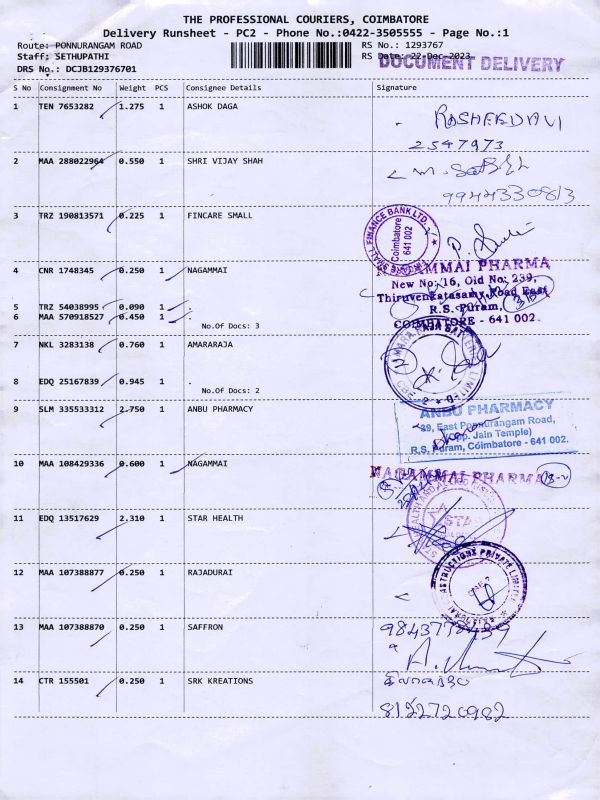 THE PROFESSIONAL COURIERS, COIMBATORE
Delivery Runsheet - PC2 - Phone No.:0422-3505555 - Page No.:1
Route: PONNURANGAM ROAD
RS No.: 1293767
Staff: SETHUPATHI
RS Date: 22-Dec-2023
DOCUMENT DELIVERY
DRS No.: DCJB129376701
S No Consignment No Weight PCS Consignee Details Signature
1 TEN 7653282 1.275 1 ASHOK DAGA
RASHEEDAVI
2547973
2 MAA 288022964 0.550 1 SHRI VIJAY SHAH
9944330813
3 TRZ 190813571 0.225 1 FINCARE SMALL
SMALL FINANCE BANK LTD.
Coimbatore
641 002
4 CNR 1748345 0.250 1 NAGAMMAI
NAGAMMAI PHARMA
New No: 16, Old No: 239,
Thiruvenkatasamy Road East
R.S. Puram,
COIMBATORE - 641 002.
5 TRZ 54038995 0.090 1
6 MAA 570918527 0.450 1
No.Of Docs: 3
7 NKL 3283138 0.760 1 AMARARAJA
8 EDQ 25167839 0.945 1 .
No.Of Docs: 2
9 SLM 335533312 2.750 1 ANBU PHARMACY
ANBU PHARMACY
29, East Ponnurangam Road,
(Opp. Jain Temple)
R.S. Puram, Coimbatore - 641 002.
10 MAA 108429336 0.600 1 NAGAMMAI
NAGAMMAI PHARMA
11 EDQ 13517629 2.310 1 STAR HEALTH
STAR
12 MAA 107388877 0.250 1 RAJADURAI
13 MAA 107388870 0.250 1 SAFFRON
14 CTR 155501 0.250 1 SRK KREATIONS
8122720982